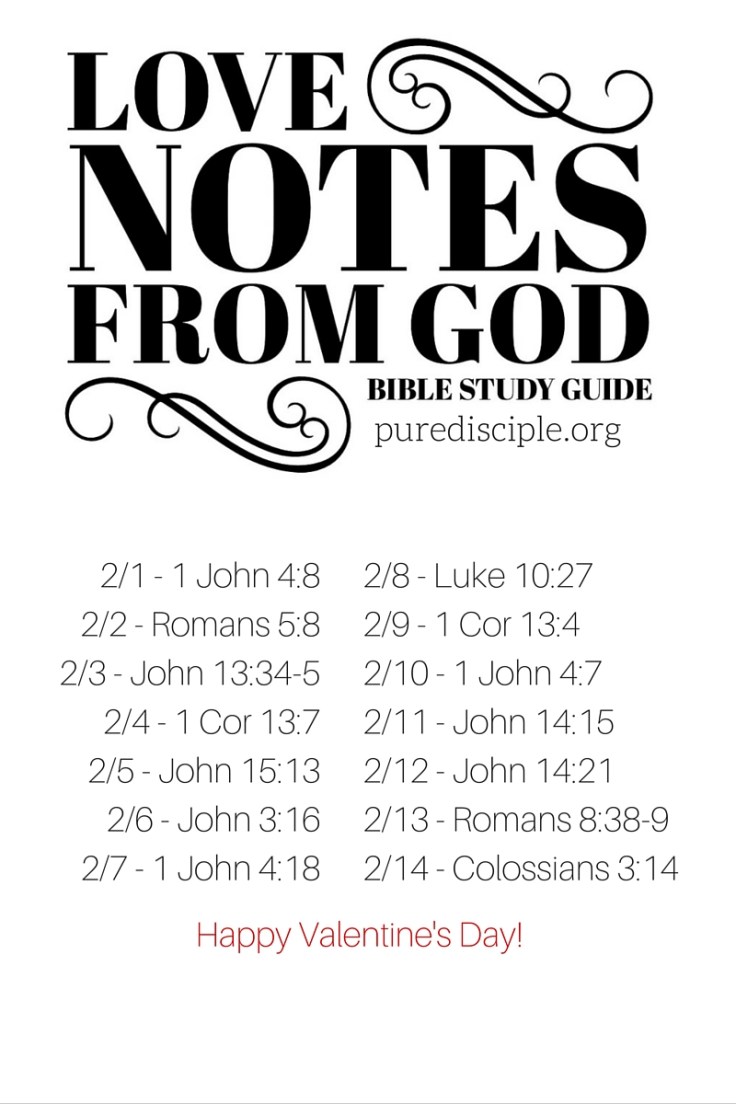 LOVE
NOTES
FROM GOD
BIBLE STUDY GUIDE
puredisciple.org
2/1 - 1 John 4:8
2/2 - Romans 5:8
2/3 - John 13:34-5
2/4 - 1 Cor 13:7
2/5 - John 15:13
2/6 - John 3:16
2/7 - 1 John 4:18
2/8 - Luke 10:27
2/9 - 1 Cor 13:4
2/10 - 1 John 4:7
2/11 - John 14:15
2/12 - John 14:21
2/13 - Romans 8:38-9
2/14 - Colossians 3:14
Happy Valentine's Day!